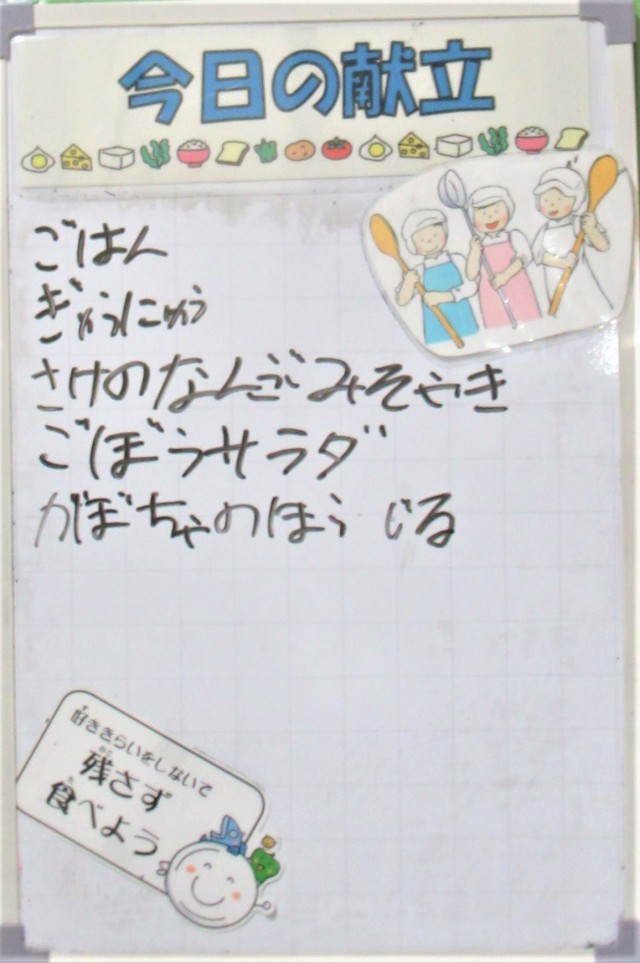 今日の献立
ごはん
ぎゅうにゅう
さけのなんごみそやき
ごぼうサラダ
がぼちゃのほうじる
好ききらいをしないで
残さず
食べよう